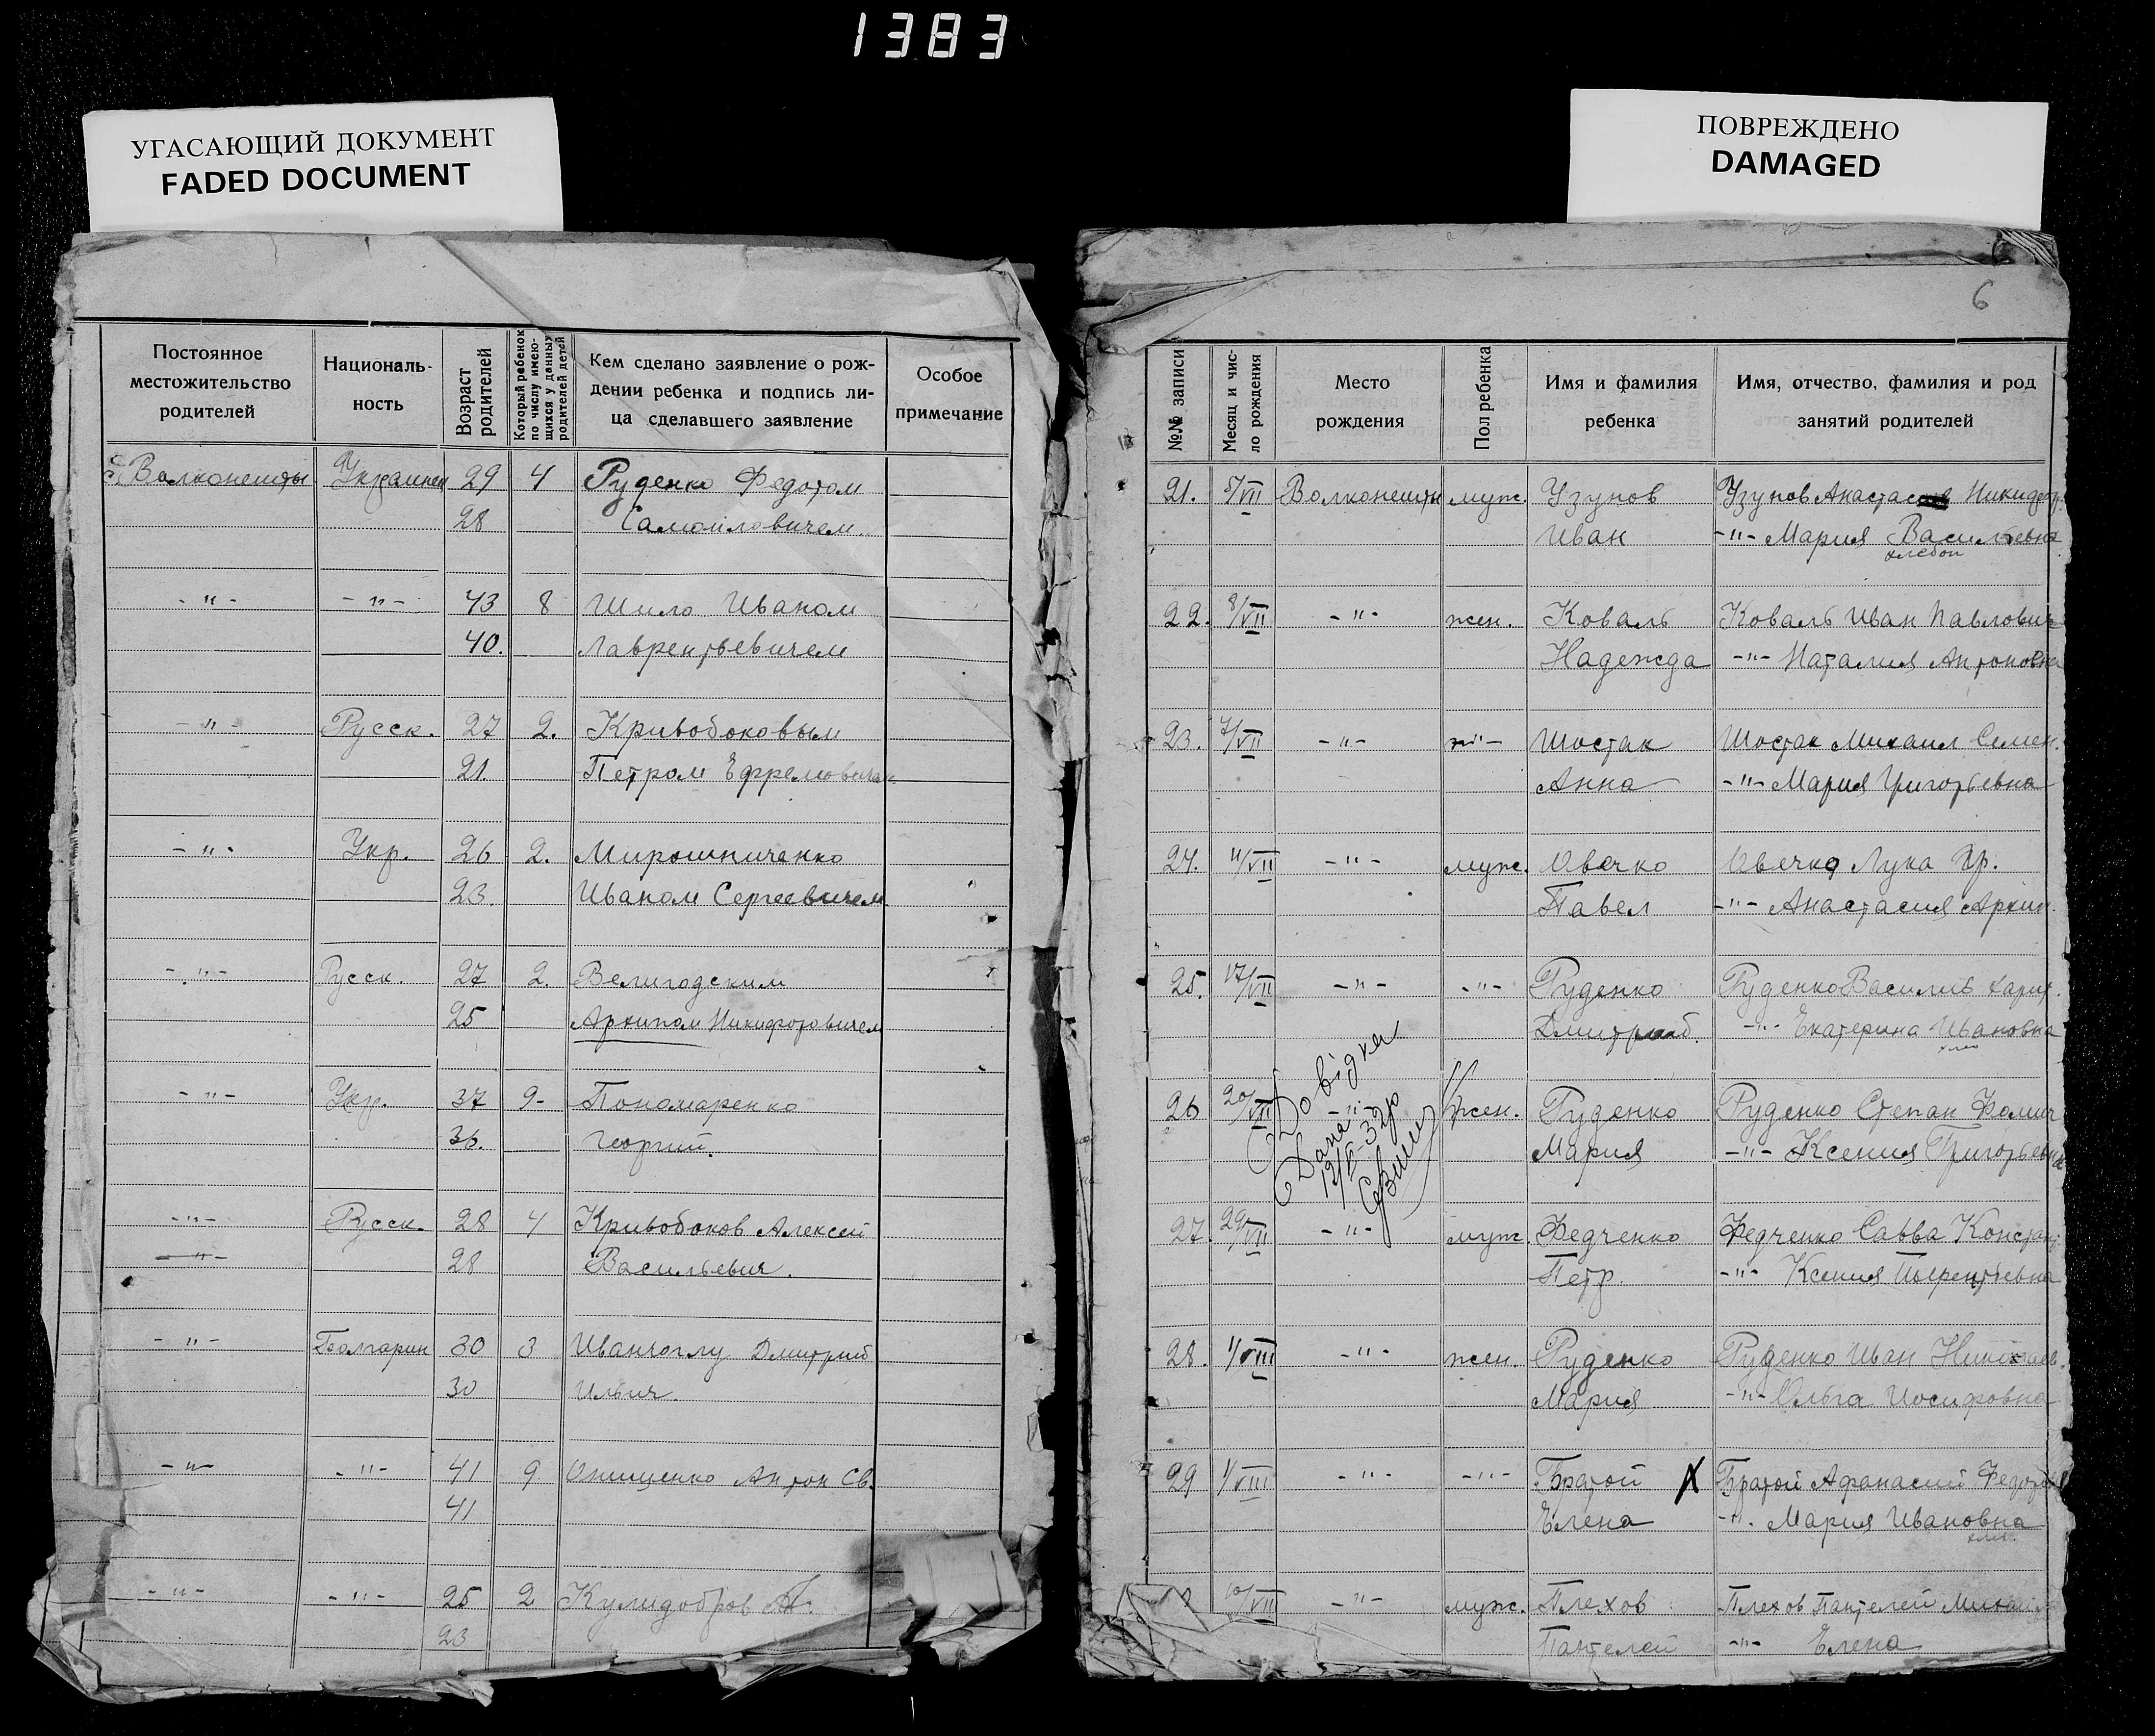 1383
УГАСАЮЩИЙ ДОКУМЕНТ
FADED DOCUMENT
ПОВРЕЖДЕНО
DAMAGED
Постоянное местожительство родителей
Националь-ность
Возраст родителей
Который ребенок по числу имею-щихся у данных родителей детей
Кем сделано заявление о рож-дении ребенка и подпись ли-ца сделавшего заявление
Особое примечание
Волконешты Украинец 29 4 Руденко Федотом
28 Самойловичем.
-"- -"- 43 8 Шило Иваном
40. Лаврентьевичем
-"- Русск. 27 2. Кривобоковым
21 Петром Ефремовичем
-"- Укр. 26 2. Мирошниченко
23. Иваном Сергеевичем
-"- Русск. 27 2. Велигодским
25 Архипом Никифоровичем
-"- Укр. 37 9- Пономаренко
36. Георгий.
-"- Русск. 28 4 Кривобоков Алексей
-"- 28 Васильевич.
-"- Болгарин 30 3 Иванчоглу Дмитрий
30 Ильич.
-"- -"- 41 9 Онищенко Антон Св.
41
-"- -"- 25 2 Кулидобров
23
6
№№ записи
Месяц и чис-ло рождения
Место рождения
Пол ребенка
Имя и фамилия ребенка
Имя, отчество, фамилия и род занятий родителей
21. 5/VII Волконешты муж. Узунов Узунов
Иван -"- Мария Васильевна
22. 8/VII -"- жен. Коваль Коваль Иван Павлович
Надежда -"- Наталия Антоновна
23. 7/VII -"- -"- Шостак Шостак Михаил Семен.
Анна -"- Мария Григорьевна
24. 11/VII -"- муж. Овечко Овечко Лука Гр.
Павел -"- Анастасия Архип.
25. 17/VII -"- -"- Руденко Руденко Василий Харит.
Дмитрий. -"- Екатерина Ивановна
Довідка
Дана
26 20/VII -"- жен. Руденко Руденко Степан Фомич
Мария -"- Ксения Григорьевна
27. 29/VII -"- муж. Федченко Федченко Савва Констант.
Петр. -"- Ксения
28. 1/VIII -"- жен. Руденко Руденко Иван Николаев.
Мария -"- Ольга Иосифовна
29 1/VIII -"- -"- Братой Братой Афанасий
Елена -"- Мария Ивановна
10/VII -"- муж. Плехов Плехов Пантелей
Пантелей -"- Елена